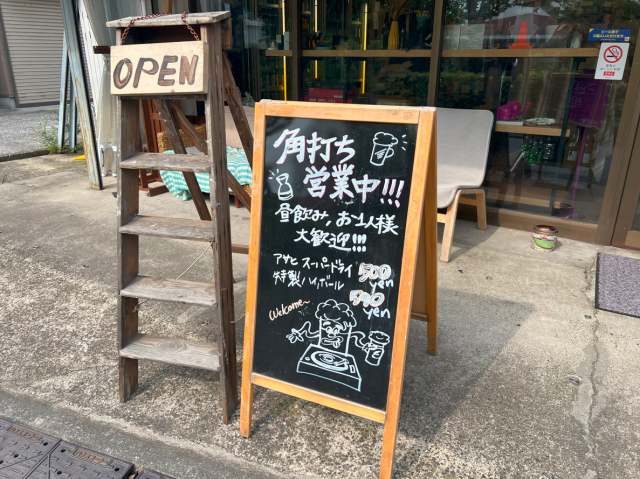 OPEN
角打ち
営業中!!!
昼飲み,お1人様
大歓迎!!!
アサヒ スーパードライ 500yen
特製ハイボール 590yen
Welcome~